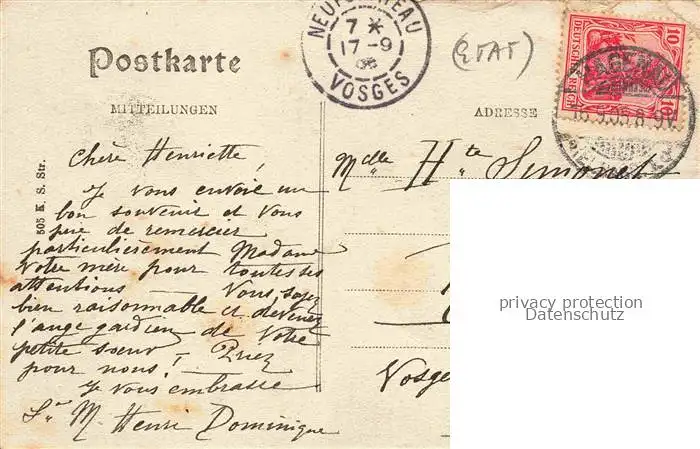 NEUFCHATEAU
7 *
17-9
VOSGES
(ETAT)
10 10
DEUTSCHES REICH
HAGENAU
16.9.05.8-9V.
Postkarte
MITTEILUNGEN
ADRESSE
505 K. S. Str.
Chère Henriette,
Je vous envoie un
bon souvenir et vous
prie de remercier
particulièrement Madame
votre mère pour toutes ses
attentions — Vous, soyez
bien raisonnable et devenez
l'ange gardien de votre
petite sœur — Priez
pour nous !
Je vous embrasse
Sr M. Henri Dominique
Mdlle Hte Simonet
Vosges
privacy protection
Datenschutz